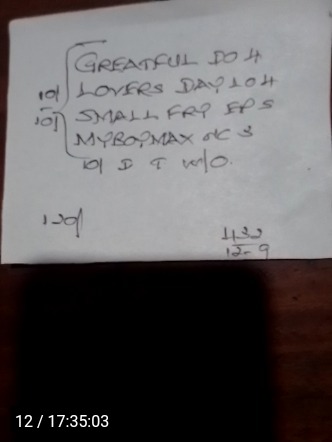 GREATFUL DO 4
10/ LOVERS DAY 10 4
10/ SMALL FRY EP 5
MYBOYMAX NC 3
10/ D T W/O.
120/
432
12-9
12 / 17:35:03